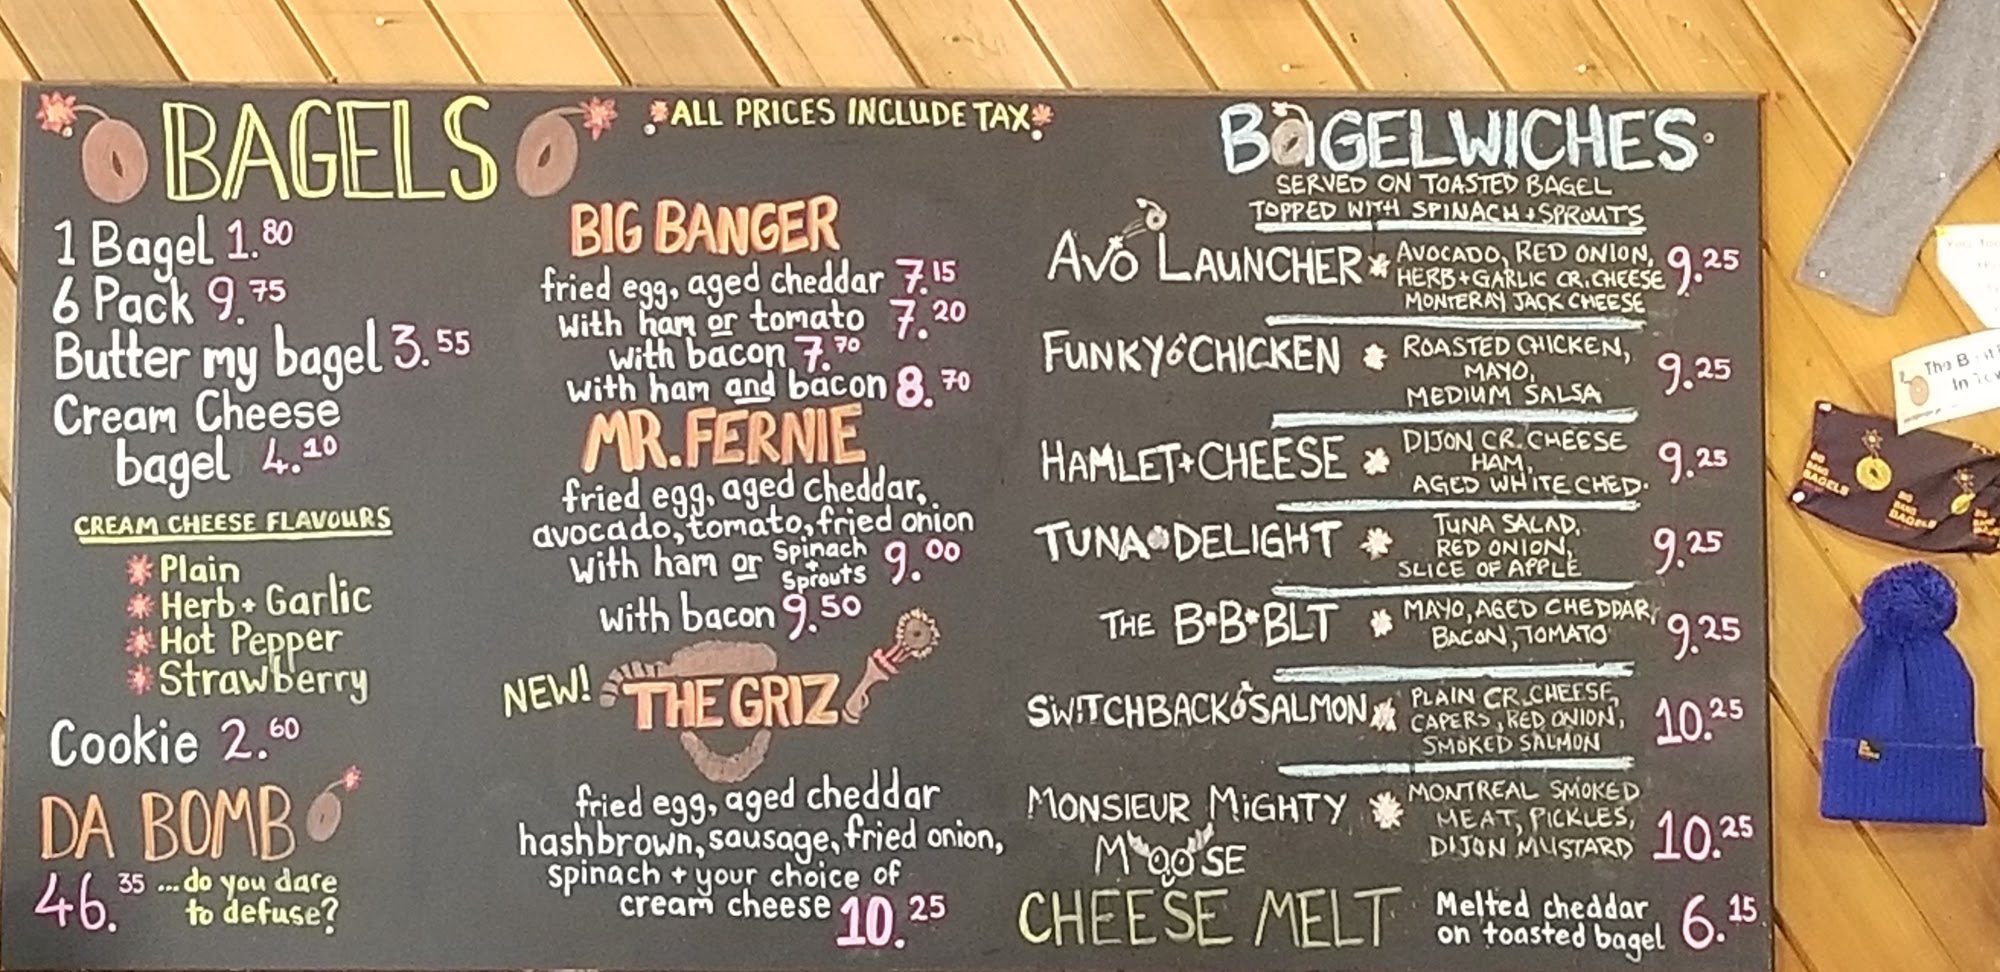 BAGELS
1 Bagel 1.80
6 Pack 9.75
Butter my bagel 3.55
Cream Cheese
bagel 4.10
CREAM CHEESE FLAVOURS
Plain
Herb + Garlic
Hot Pepper
Strawberry
Cookie 2.60
DA BOMB
46.35 ...do you dare
to defuse?
*ALL PRICES INCLUDE TAX*
BIG BANGER
fried egg, aged cheddar 7.15
with ham or tomato 7.20
with bacon 7.70
with ham and bacon 8.70
MR. FERNIE
fried egg, aged cheddar,
avocado, tomato, fried onion
with ham or Spinach + Sprouts 9.00
with bacon 9.50
NEW! THE GRIZ
fried egg, aged cheddar
hashbrown, sausage, fried onion,
spinach + your choice of
cream cheese 10.25
BAGELWICHES
SERVED ON TOASTED BAGEL
TOPPED WITH SPINACH + SPROUTS
AVO LAUNCHER * AVOCADO, RED ONION, 9.25
HERB + GARLIC CR. CHEESE
MONTERAY JACK CHEESE
FUNKY CHICKEN * ROASTED CHICKEN, 9.25
MAYO,
MEDIUM SALSA
HAMLET + CHEESE * DIJON CR. CHEESE 9.25
HAM,
AGED WHITE CHED.
TUNA DELIGHT * TUNA SALAD, 9.25
RED ONION,
SLICE OF APPLE
THE B*B*BLT * MAYO, AGED CHEDDAR, 9.25
BACON, TOMATO
SWITCHBACK SALMON * PLAIN CR. CHEESE, 10.25
CAPERS, RED ONION,
SMOKED SALMON
MONSIEUR MIGHTY * MONTREAL SMOKED 10.25
MOOSE MEAT, PICKLES,
DIJON MUSTARD
CHEESE MELT Melted cheddar 6.15
on toasted bagel
The
In
BIG
BANG
BAGELS
BIG
BANG
BAGELS